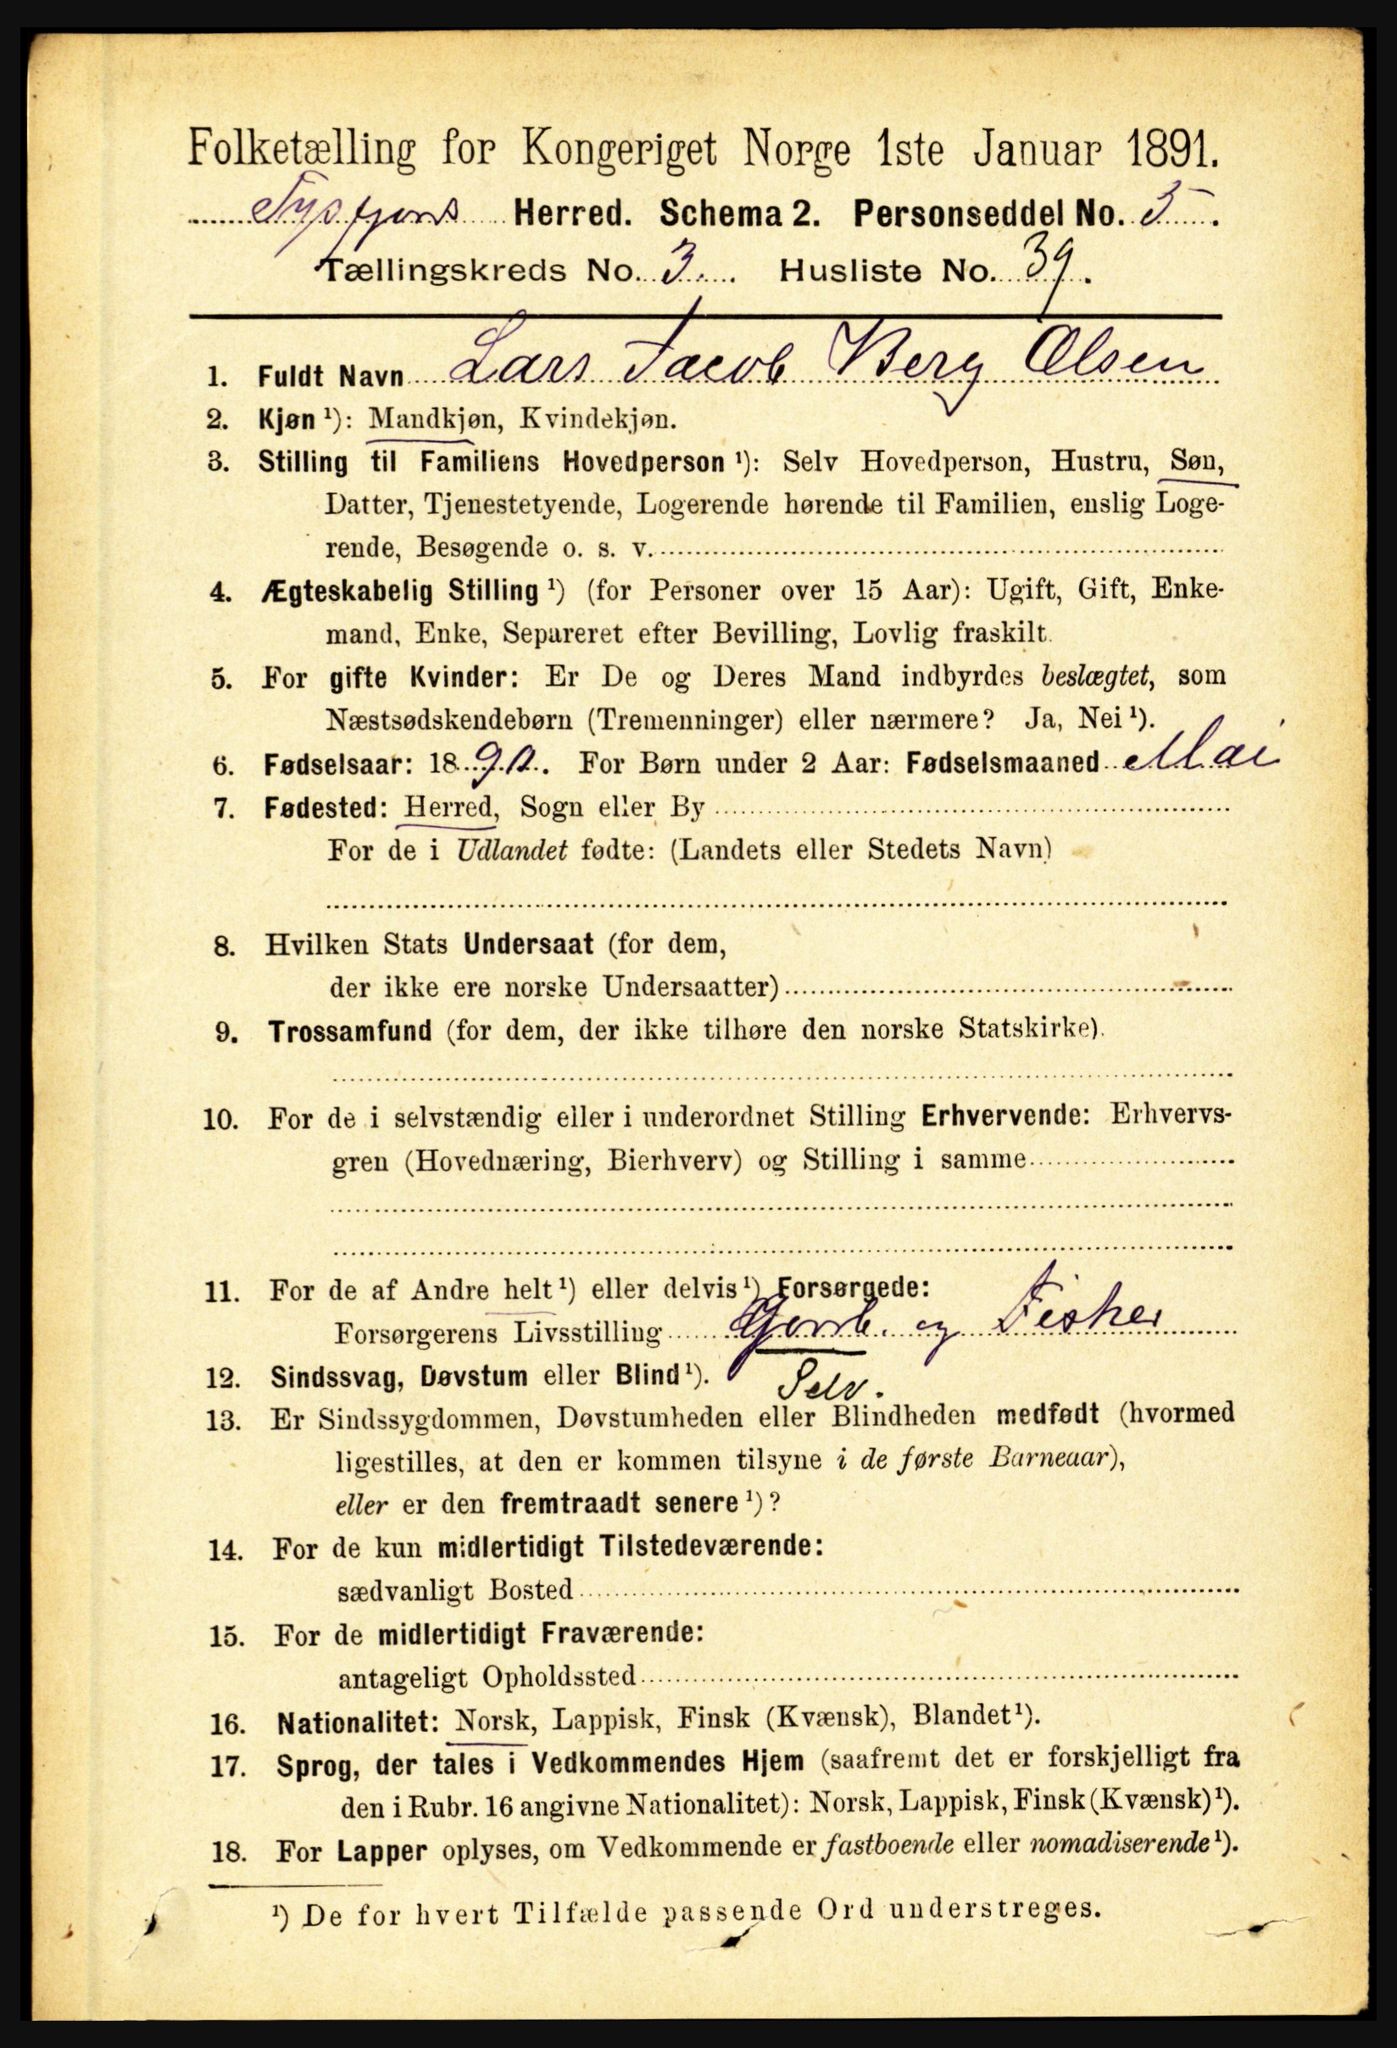 Folketælling for Kongeriget Norge 1ste Januar 1891.
Tysfjord Herred. Schema 2. Personseddel No. 5.
Tællingskreds No. 3. Husliste No. 39.
1. Fuldt Navn Lars Jacob Berg Olsen
2. Kjøn ¹): Mandkjøn, Kvindekjøn.
3. Stilling til Familiens Hovedperson ¹): Selv Hovedperson, Hustru, Søn,
Datter, Tjenestetyende, Logerende hørende til Familien, enslig Loge-
rende, Besøgende o. s. v.
4. Ægteskabelig Stilling ¹) (for Personer over 15 Aar): Ugift, Gift, Enke-
mand, Enke, Separeret efter Bevilling, Lovlig fraskilt.
5. For gifte Kvinder: Er De og Deres Mand indbyrdes beslægtet, som
Næstsødskendebørn (Tremenninger) eller nærmere? Ja, Nei ¹).
6. Fødselsaar: 1890. For Børn under 2 Aar: Fødselsmaaned Mai
7. Fødested: Herred, Sogn eller By
For de i Udlandet fødte: (Landets eller Stedets Navn)
8. Hvilken Stats Undersaat (for dem,
der ikke ere norske Undersaatter)
9. Trossamfund (for dem, der ikke tilhøre den norske Statskirke).
10. For de i selvstændig eller i underordnet Stilling Erhvervende: Erhvervs-
gren (Hovednæring, Bierhverv) og Stilling i samme
11. For de af Andre helt ¹) eller delvis ¹) Forsørgede:
Forsørgerens Livsstilling Gaardb. og Fisker
12. Sindssvag, Døvstum eller Blind ¹). Selv.
13. Er Sindssygdommen, Døvstumheden eller Blindheden medfødt (hvormed
ligestilles, at den er kommen tilsyne i de første Barneaar),
eller er den fremtraadt senere ¹)?
14. For de kun midlertidigt Tilstedeværende:
sædvanligt Bosted
15. For de midlertidigt Fraværende:
antageligt Opholdssted
16. Nationalitet: Norsk, Lappisk, Finsk (Kvænsk), Blandet ¹).
17. Sprog, der tales i Vedkommendes Hjem (saafremt det er forskjelligt fra
den i Rubr. 16 angivne Nationalitet): Norsk, Lappisk, Finsk (Kvænsk) ¹).
18. For Lapper oplyses, om Vedkommende er fastboende eller nomadiserende ¹).
¹) De for hvert Tilfælde passende Ord understreges.